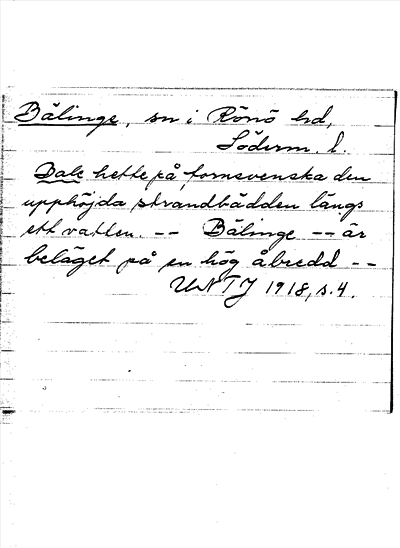 Bälinge, sn i Rönö hd,
Söderm. l.
Bale hette på fornsvenska den
upphöjda strandbädden längs
ett vatten. -- Bälinge -- är
beläget på en hög åbredd --
UNTJ 1918, s. 4.